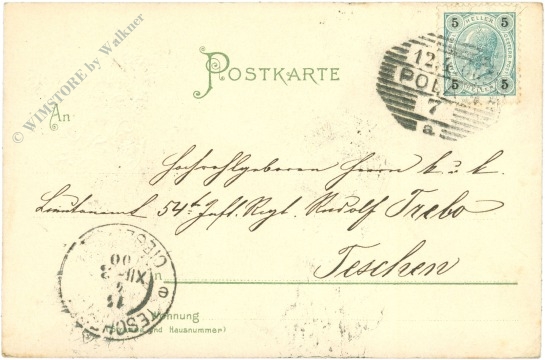 © WIMSTORE by Walkner
POSTKARTE
5 HELLER 5
5 5
12.
POL
7
a
An
Hochwohlgeboren Herrn k. u. k.
Lieutenant 54tn Inft. Regt. Rudolf
Teschen
TESCHEN
CIES
XII
00
Wohnung
(Strasse und Hausnummer)